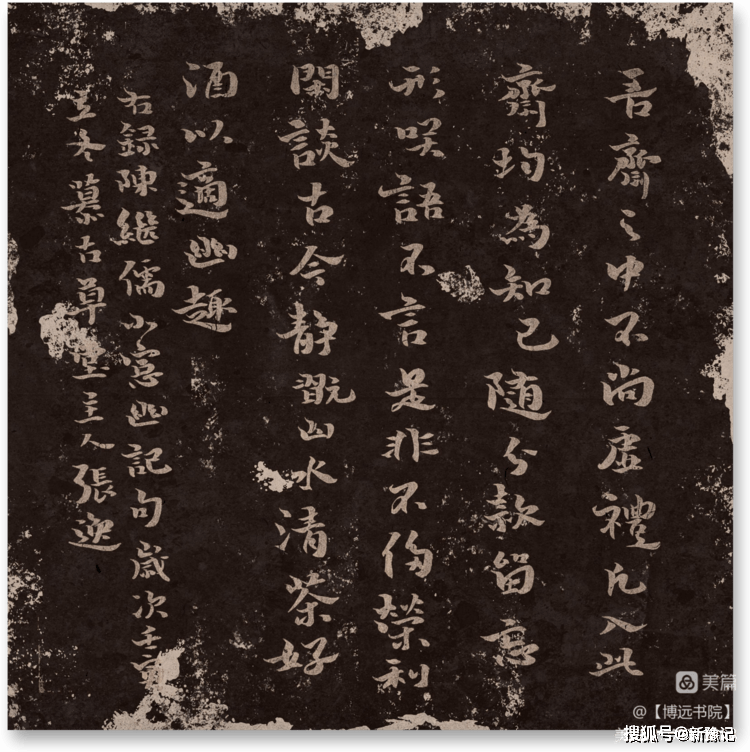 吾齋之中不尚虛禮凡入此
齋均為知己随分款留忘
形咲語不言是非不侈榮利
閑談古今静翫山水清茶好
酒以適幽趣
右録陳繼儒小窻幽記句歲次壬寅
立冬慕古草堂主人張逸
美篇
@【博远书院】
搜狐号@新豫记